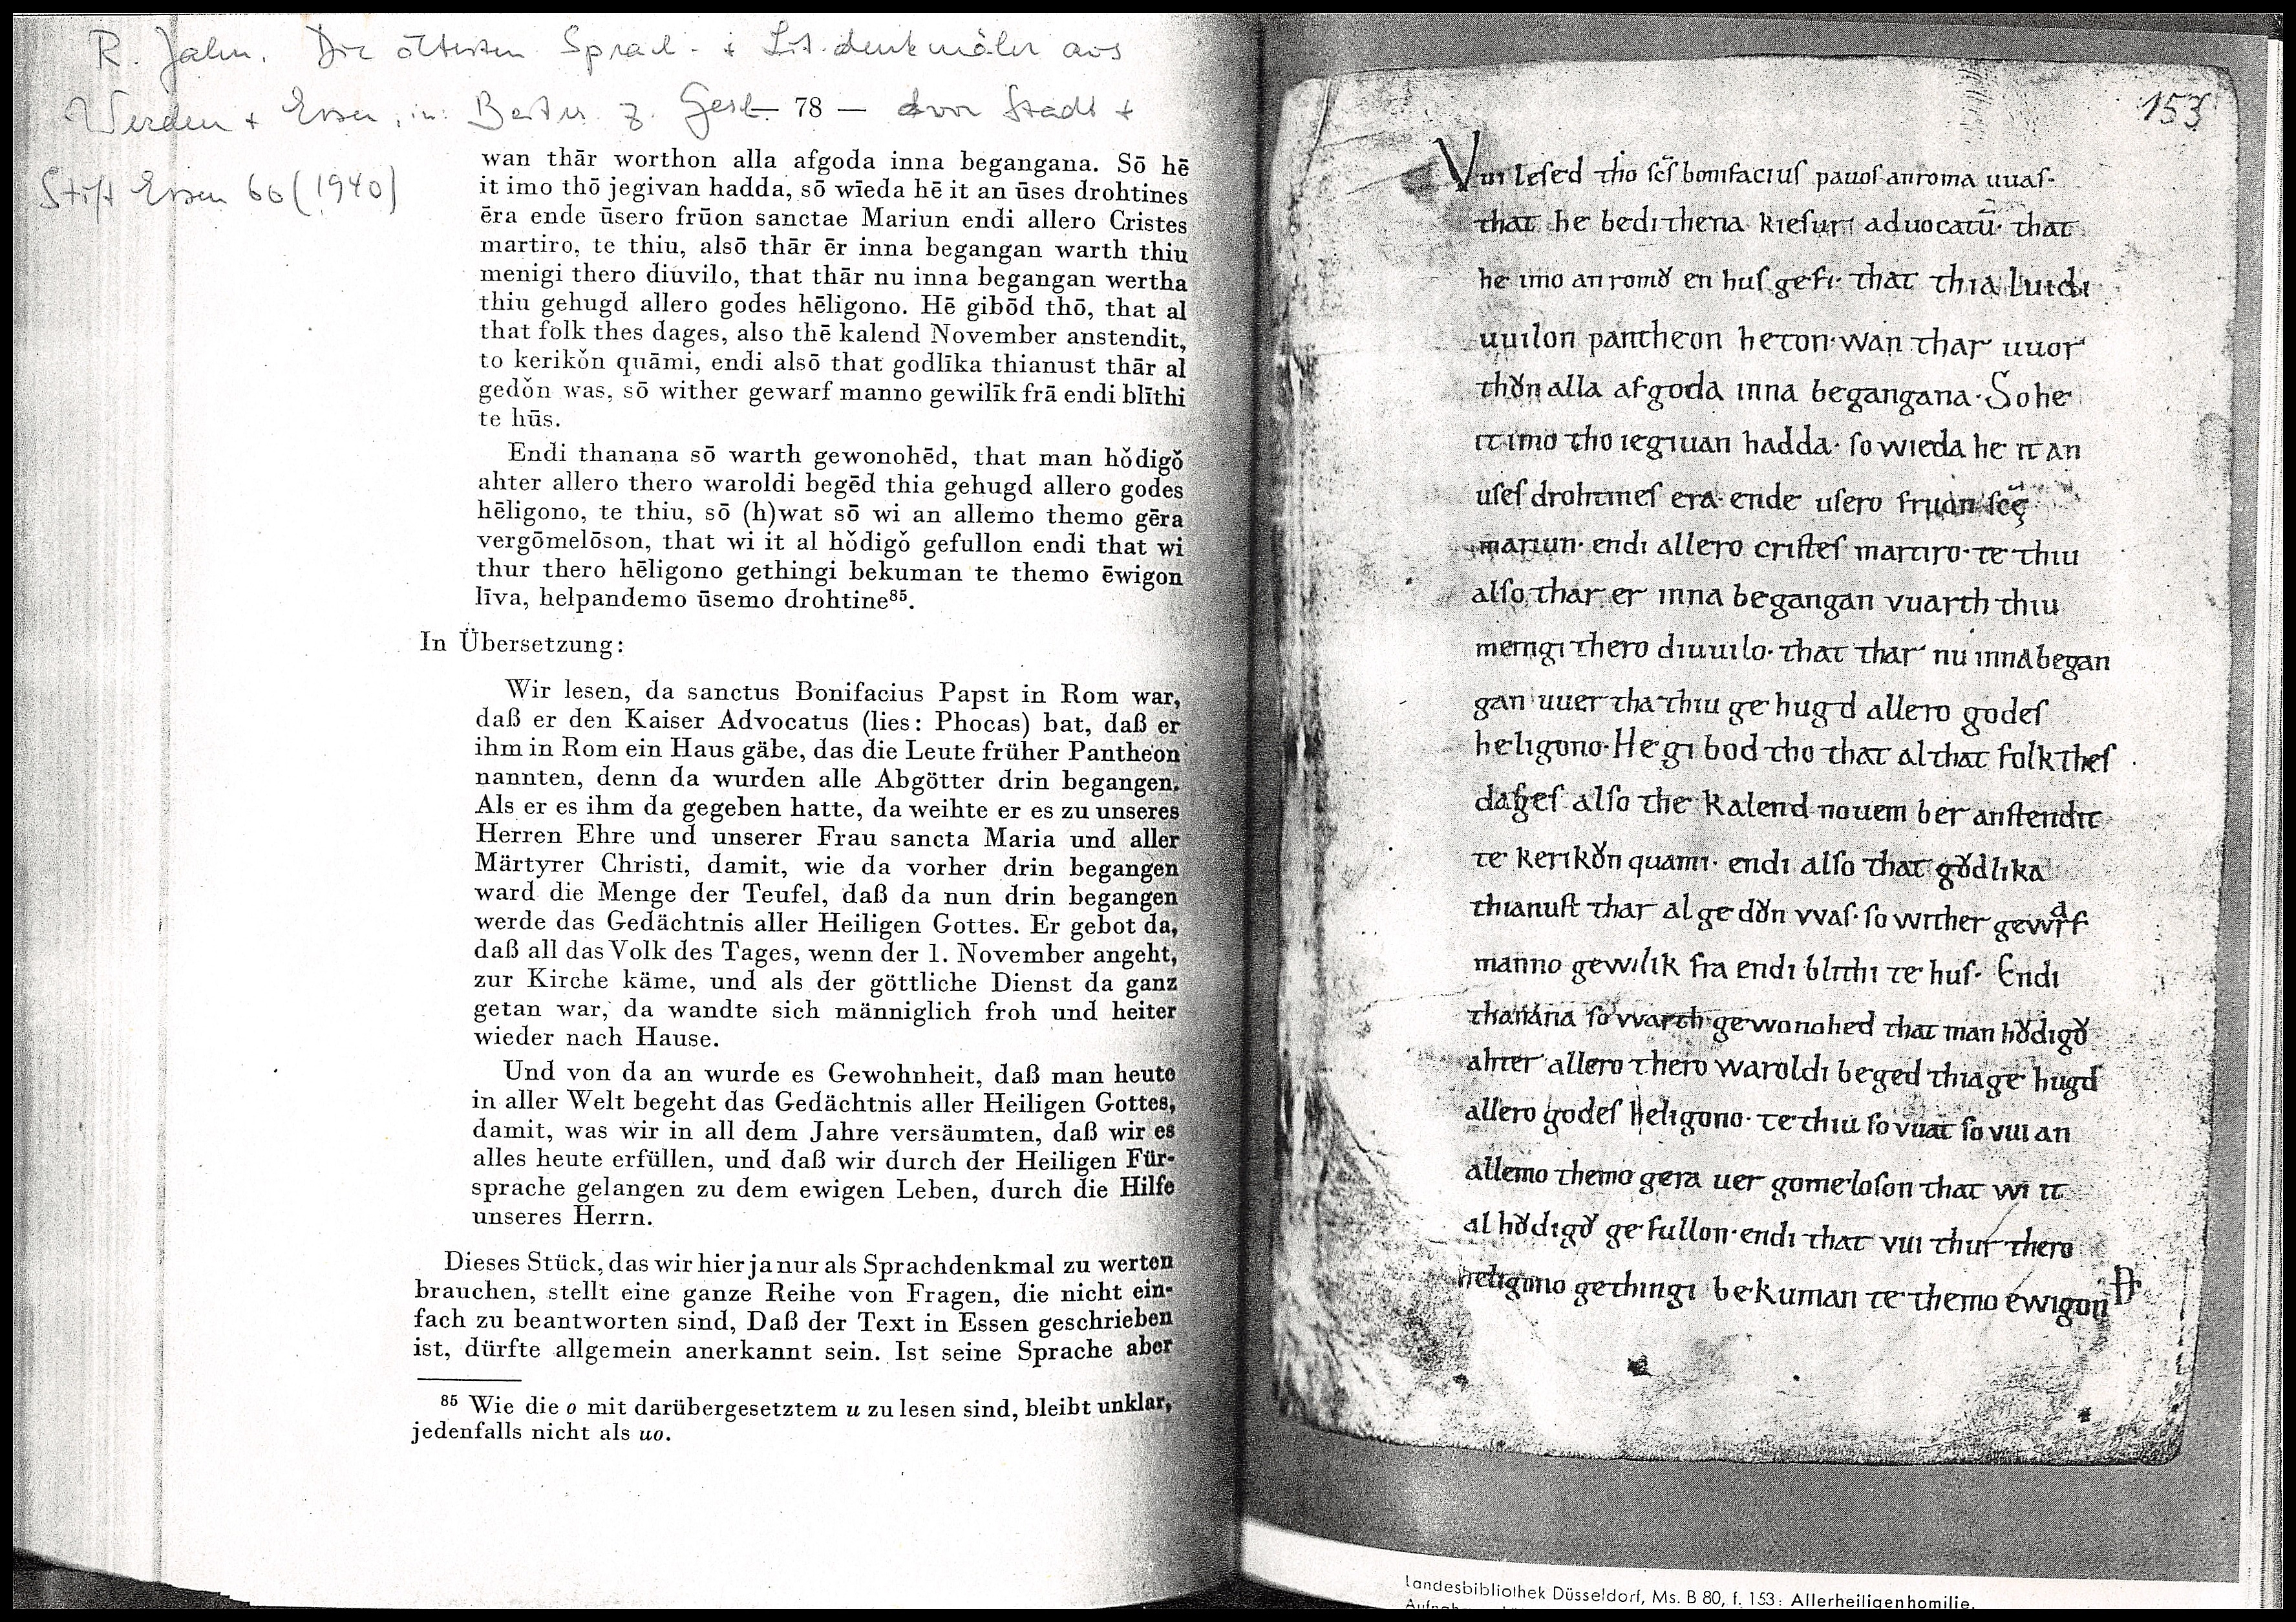 R. Jahn. Die ältesten Sprach- + Lit.denkmäler aus
Werden + Essen, in: Beitr. z. Gesch. — 78 — von Stadt +
Stift Essen 60 (1940)
wan thār worthon alla afgoda inna begangana. Sō hē
it imo thō jegivan hadda, sō wīeda hē it an ūses drohtines
ēra ende ūsero frūon sanctae Mariun endi allero Cristes
martiro, te thiu, alsō thār ēr inna begangan warth thiu
menigi thero diuvilo, that thār nu inna begangan wertha
thiu gehugd allero godes hēligono. Hē gibōd thō, that al
that folk thes dages, also thē kalend November anstendit,
to kerikǒn quāmi, endi alsō that godlīka thianust thār al
gedǒn was, sō wither gewarf manno gewilīk frā endi blīthi
te hūs.
Endi thanana sō warth gewonohēd, that man hǒdigǒ
ahter allero thero waroldi begēd thia gehugd allero godes
hēligono, te thiu, sō (h)wat sō wi an allemo themo gēra
vergōmelōson, that wi it al hǒdigǒ gefullon endi that wi
thur thero hēligono gethingi bekuman te themo ēwigon
līva, helpandemo ūsemo drohtine⁸⁵.
In Übersetzung:
Wir lesen, da sanctus Bonifacius Papst in Rom war,
daß er den Kaiser Advocatus (lies: Phocas) bat, daß er
ihm in Rom ein Haus gäbe, das die Leute früher Pantheon
nannten, denn da wurden alle Abgötter drin begangen.
Als er es ihm da gegeben hatte, da weihte er es zu unseres
Herren Ehre und unserer Frau sancta Maria und aller
Märtyrer Christi, damit, wie da vorher drin begangen
ward die Menge der Teufel, daß da nun drin begangen
werde das Gedächtnis aller Heiligen Gottes. Er gebot da,
daß all das Volk des Tages, wenn der 1. November angeht,
zur Kirche käme, und als der göttliche Dienst da ganz
getan war, da wandte sich männiglich froh und heiter
wieder nach Hause.
Und von da an wurde es Gewohnheit, daß man heute
in aller Welt begeht das Gedächtnis aller Heiligen Gottes,
damit, was wir in all dem Jahre versäumten, daß wir es
alles heute erfüllen, und daß wir durch der Heiligen Für-
sprache gelangen zu dem ewigen Leben, durch die Hilfe
unseres Herrn.
Dieses Stück, das wir hier ja nur als Sprachdenkmal zu werten
brauchen, stellt eine ganze Reihe von Fragen, die nicht ein-
fach zu beantworten sind, Daß der Text in Essen geschrieben
ist, dürfte allgemein anerkannt sein. Ist seine Sprache aber
⁸⁵ Wie die o mit darübergesetztem u zu lesen sind, bleibt unklar,
jedenfalls nicht als uo.
153
Vui leſed tho ſc̄ſ bonifaciuſ pauoſ anroma uuaſ·
that he bedi thena kieſuri aduocatū· that
he imo an romoͮ en huſ gefi· that thia luidi
uuilon pantheon heton· wan thar uuor
thoͮn alla afgoda inna begangana· So he
it imo tho iegiuan hadda· ſo wieda he it an
uſeſ drohtineſ era· ende uſero fruon ſcę̄
mariun· endi allero criſteſ martiro· te thiu
alſo thar er inna begangan vuarth thiu
menigi thero diuuilo· that thar nu inna began
gan uuertha thiu ge hugd allero godeſ
heligono· He gi bod tho that al that folk theſ
dageſ alſo the kalend nouem ber anſtendit
te kerikoͮn quami· endi alſo that goͮdlika
thianuſt thar al ge doͮn vvaſ· ſo wither gewarf
manno gewilik fra endi blithi te huſ· Endi
thanana ſo warth gewonohed that man hoͮdigoͮ
ahter allero thero waroldi beged thia ge hugd
allero godeſ heligono· te thiu ſo vuat ſo vui an
allemo themo gera uer gomeloſon that wi it
al hoͮdigoͮ ge fullon· endi that vui thur thero
heligono gethingi be kuman te themo ewigon
Landesbibliothek Düsseldorf, Ms. B 80, f. 153: Allerheiligenhomilie.